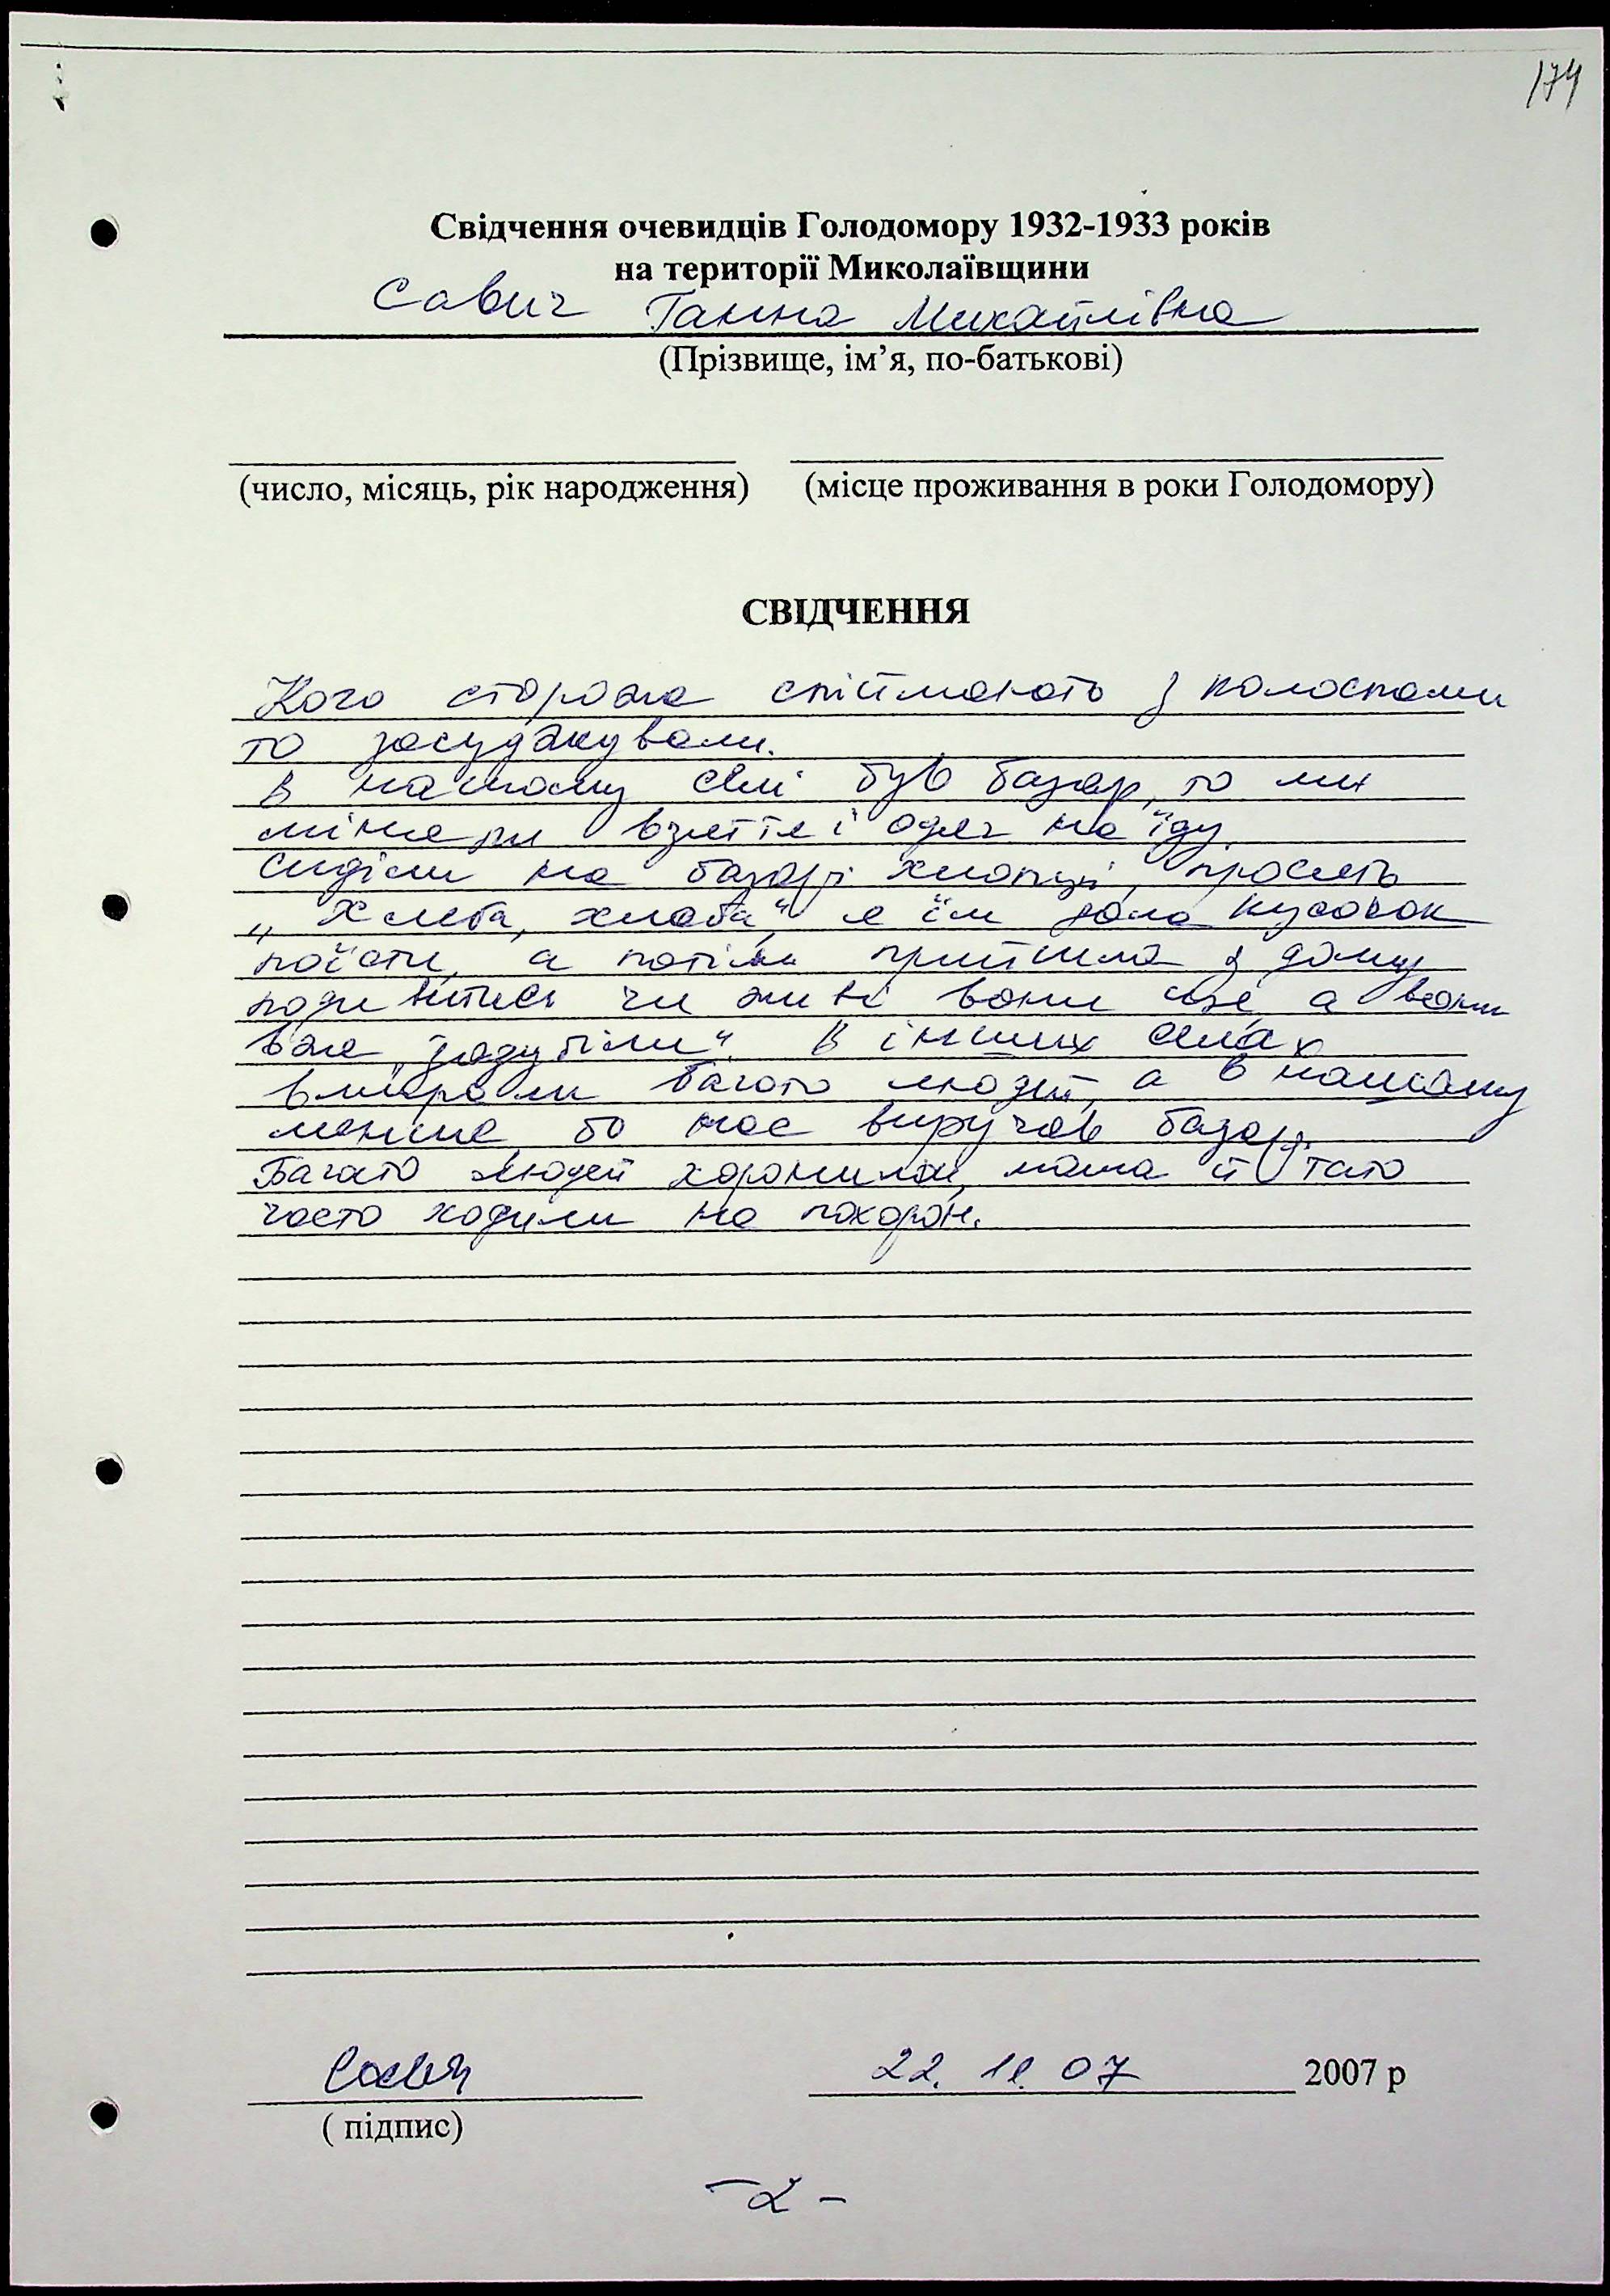 174
Свідчення очевидців Голодомору 1932-1933 років
на території Миколаївщини
Савич Ганна Михайлівна
(Прізвище, ім’я, по-батькові)
(число, місяць, рік народження) (місце проживання в роки Голодомору)
СВІДЧЕННЯ
Кого сторожа спіймають з колосками
то засуджували.
В нашому селі був базар, то ми
міняли взуття і одяг на їду.
Сиділи на базарі хлопці, просять
„Хлєба, хлєба“, я їм дала кусочок
поїсти, а потім прийшла з дому
подивитись чи живі вони ще, а вони
вже „задубіли“. В інших селах
вмирали багато людей, а в нашому
менше бо нас виручав базар.
Багато людей хоронили, мама й тато
часто ходили на похорон.
22. 11. 07 2007 р
( підпис)
- 2 -